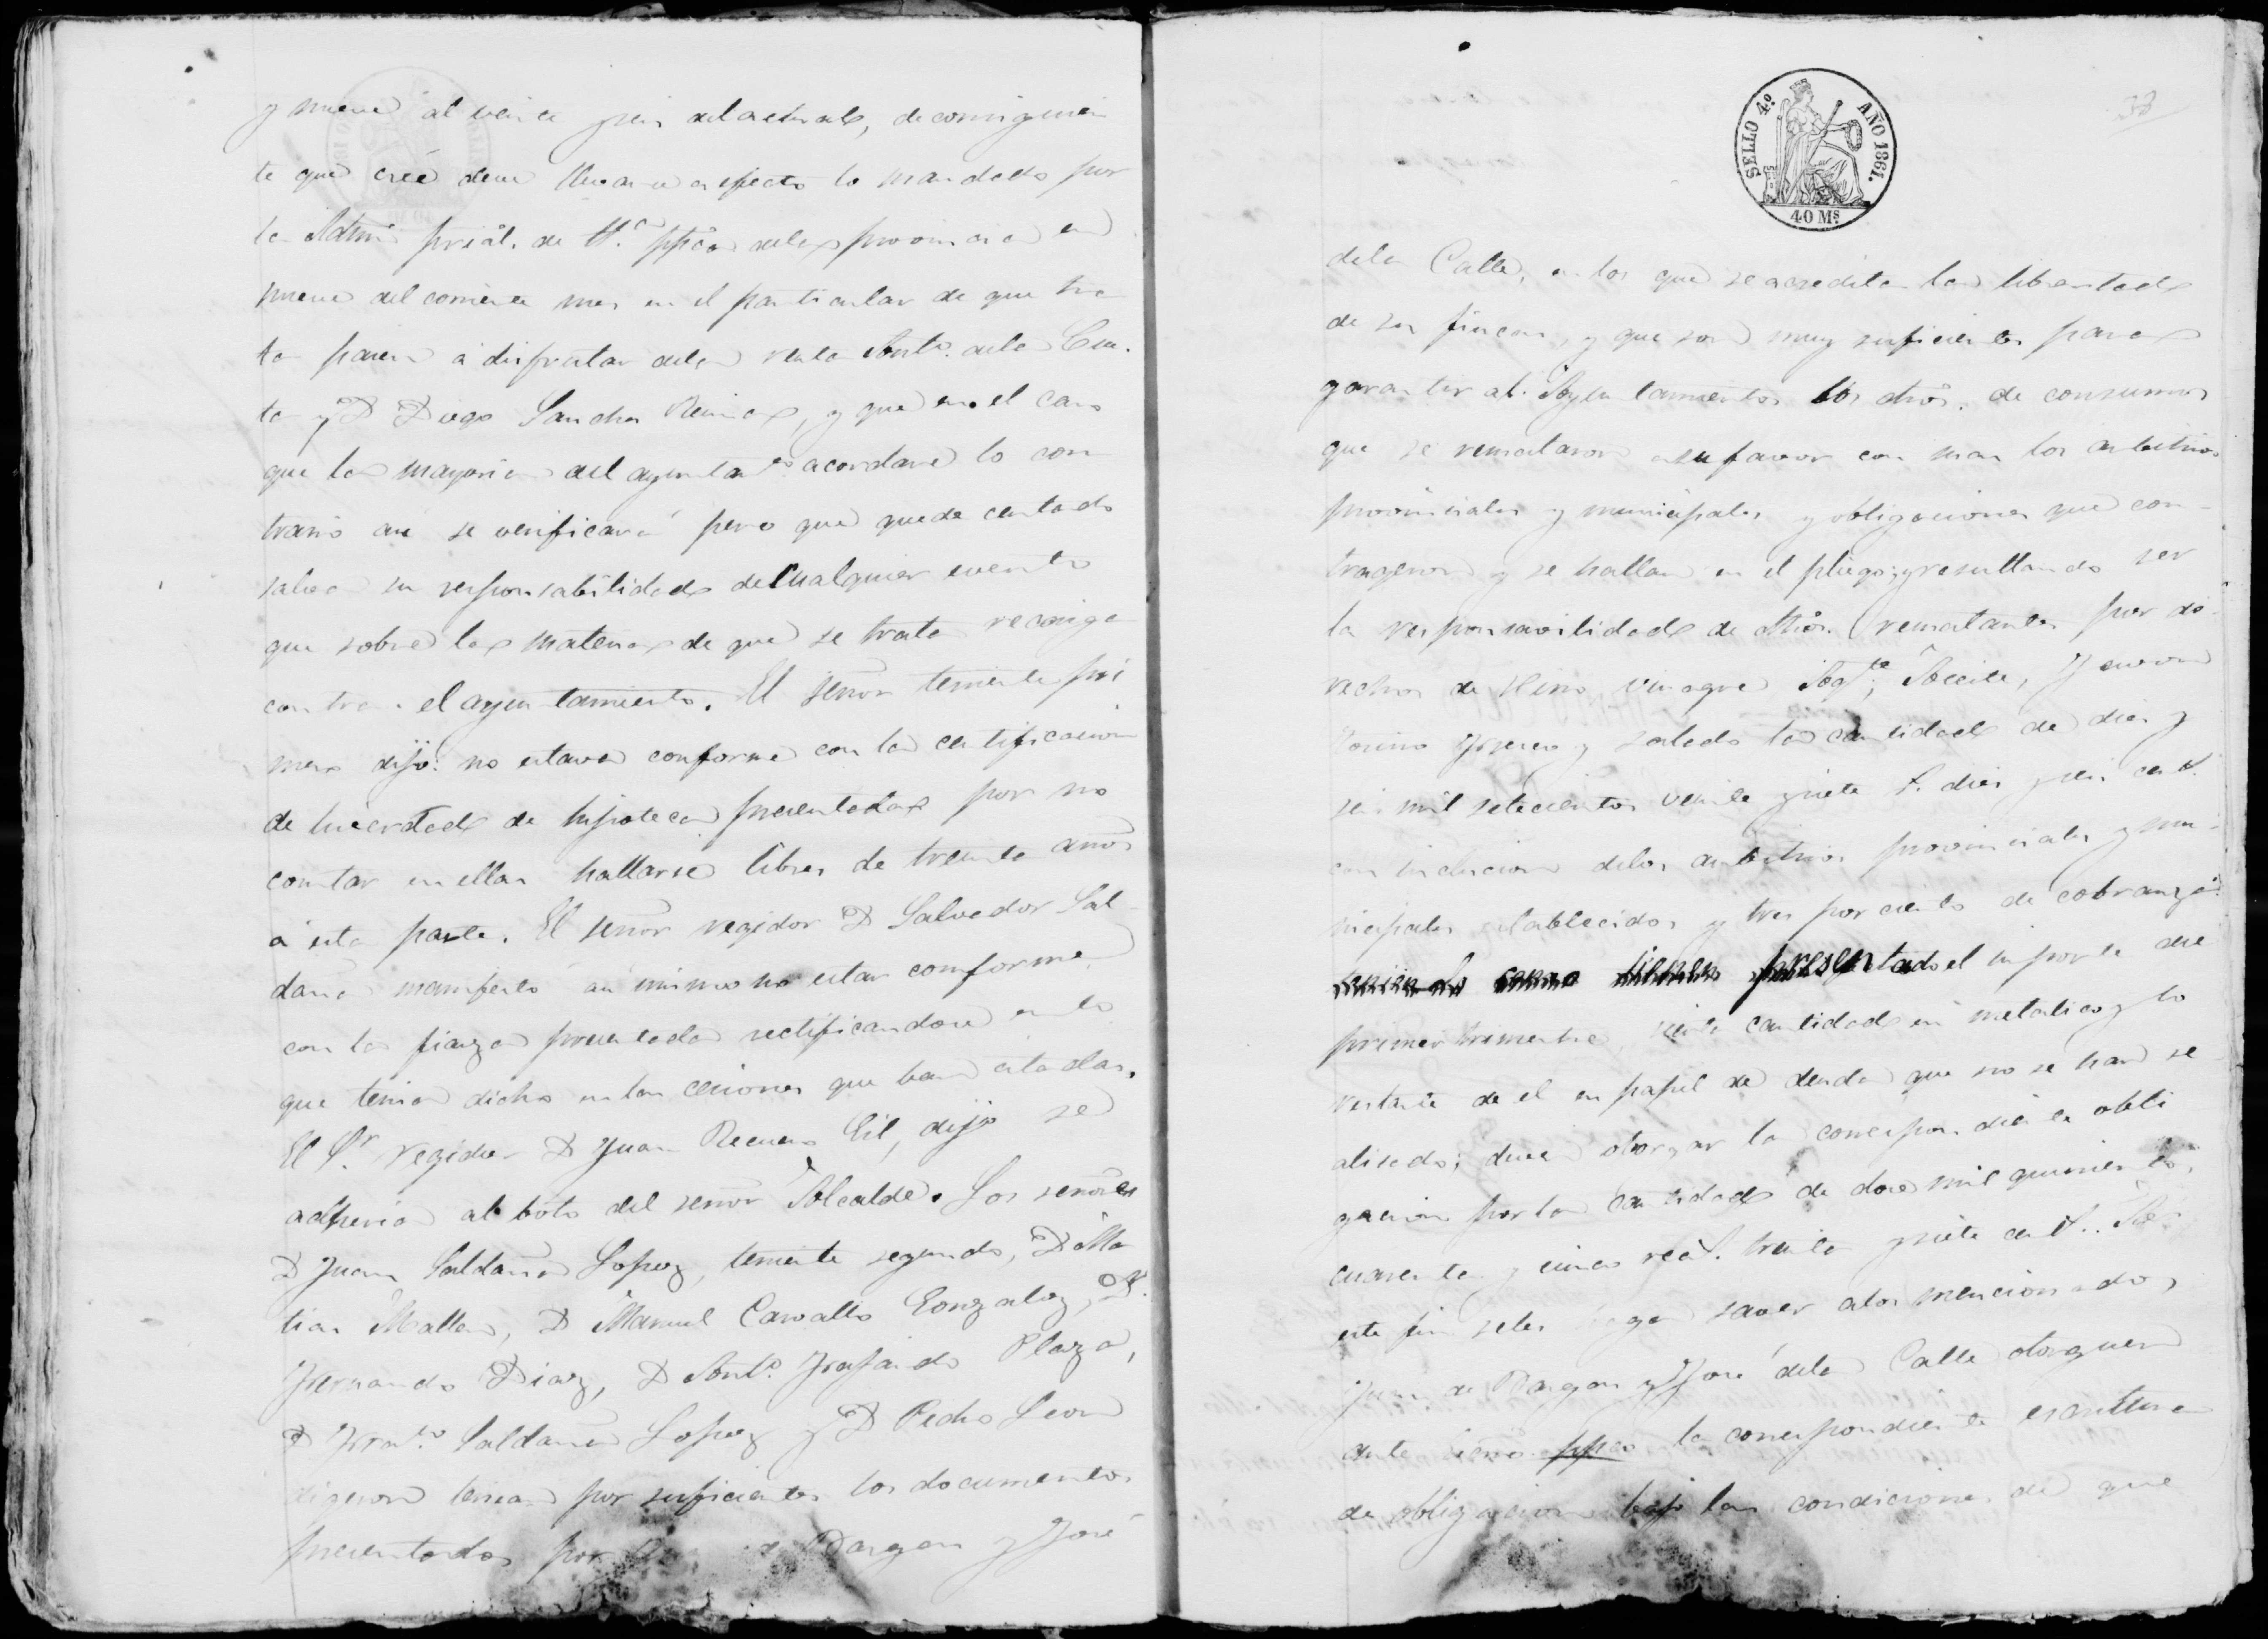 y nueve al veinte y seis del actual, de consiguien
te que creé deve llevarse a efecto lo mandado por
la Admon. prâl. de H.ª ppca de la provincia en
nueve del corriente mes en el particular de que tra
ta pasen á disfrutar de la renta Ant.º de la Cues
ta y D Diego Sanchez Reina, y que en el caso
que la mayoria del ayuntam.to acordare lo con
trario asi se verificará pero que quede
salva su responsabilidad de cualquier evento
que sobre la materia de que se trata recaiga
contra el ayuntamiento. El señor teniente pri
mero dijo: no estava conforme con la certificacion
de livertad de hipoteca presentada por no
constar en ellas hallarse libres de treinta años
á esta parte. El señor regidor D Salvador Sal
daña manifestó asi mismo no estar conforme
con la fianza presentada rectificandose en lo
que tenia dicho en las cesiones que ban citadas.
El S.r regidor D Juan Recuero Gil, dijo se
adheria al boto del señor Alcalde. Los señores
D Juan Saldaña Lopez, teniente segundo, D Ma
tias Mallen, D Manuel Carvallo Gonzalez, D.
Fernando Diaz, D Ant.º Plaza,
D Fran.co Saldaña Lopez y D Pedro Leon
digeron tenian por suficientes los documentos
presentados por de Bargas y José
SELLO 4º AÑO 1861.
40 Ms.
38
de la Calle, en los que se acredita la libertad
de sus fincas, y que son muy suficientes para
garantir al Ayuntamiento los dhos. de consumos
que se remataron a su favor con mas los arbitrios
provinciales y municipales y obligaciones que con
trageron y se hallan en el pliego; y resultando ser
la responsavilidad de dhos. rematantes por de
rechos de Vino, vinagre Ag.te, Aceite, Javon
tocino fresco y salado la cantidad de diez y
seis mil setecientos veinte y siete r. diez y seis cent.
con inclusion de los arbitrios provinciales y mu
nicipales establecidos y tres por ciento de cobranza
presentado el importe del
primer trimestre, cantidad en metalico y lo
restante de el en papel de deuda que no se han re
alisado; deven otorgar la correspondiente obli
gacion por la cantidad de doce mil quinientos
cuarenta y cinco real. treinta y siete cent.. A
este fin se les haga saver a los mencionados
Juan de Bargas y José de la Calle otorguen
ante la correspondiente escritura
de obligacion bajo las condiciones de que